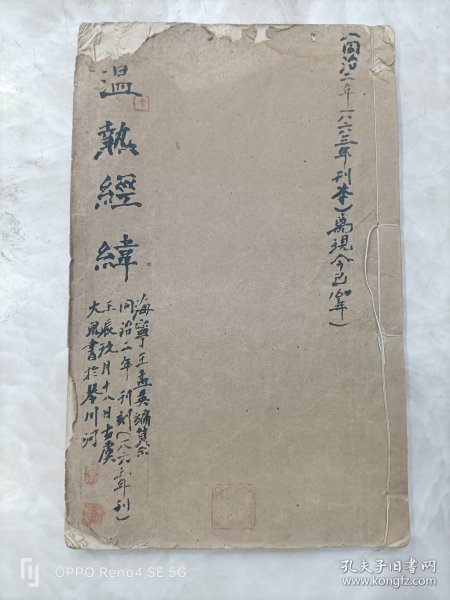 (同治二年一八六三年刊本)离现今已160年)
温热經緯
海寧王孟英編
同治二年刊刻(一八六三年刊)
壬辰玖月十八日古虞
大
書於琴川河
OPPO Reno4 SE 5G
孔夫子旧书网
www.kongfz.com